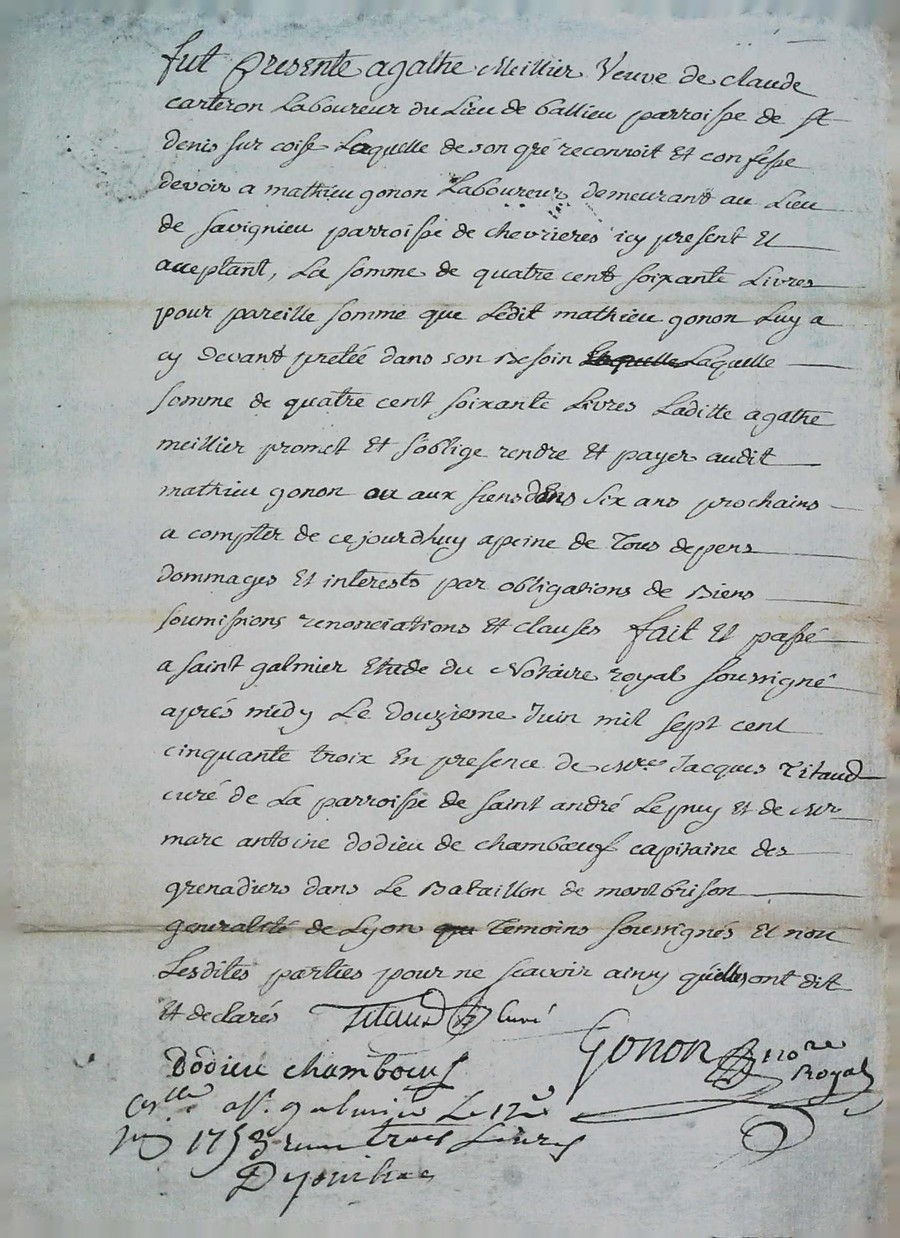 fut presente agathe Meillier Veuve de claude
carteron Laboureur du Lieu de ballieu parroisse de St
denis sur coise Laquelle de son gré reconnoit Et confesse
devoir a mathieu gonon Laboureur demeurant au Lieu
de savignieu parroisse de chevrieres icy present Et
acceptant, La somme de quatre cent soixante Livres
pour pareille somme que Ledit mathieu gonon Luy a
cy devant pretée dans son Besoin Laquelle Laquelle
somme de quatre cent soixante Livres Laditte agathe
meillier promet Et s'oblige rendre Et payer audit
mathieu gonon ou aux siens dans six ans prochains
a compter de cejourdhuy apeine de Tous depens
dommages Et interests par obligations de Biens
soumissions renonciations Et clauses fait Et passé
a saint galmier Etude du Notaire royal soussigné
aprés midy Le douzieme Juin mil sept cent
cinquante troix En presence de Mre Jacques Titaud
curé de La parroisse de saint andré Le puy Et de Mr
marc antoine dodieu de chambœuf capitaine des
grenadiers dans Le Bataillon de montbrison
generalité de Lyon qui Temoins soussignés Et non
Lesdites parties pour ne scavoir ainsy qu'elles ont dit
Et declarés Titaud Curé
Dodieu chambœuf Gonon nore
Royal
Coslle a St. galmier Le 12e
1753 trois Livres